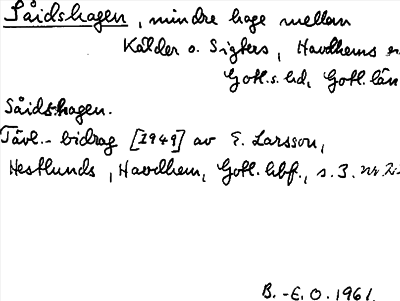 Såidshagen, mindre hage mellan
Kälder o. Sigters, Havdhems
Gotl. s. hd, Gotl. län
Såidshagen.
Tävl.- bidrag [1949] av E. Larsson,
Hestlunds, Havdhem, Gotl. hbf., s. 3. nr.
B. -E. O. 1961.